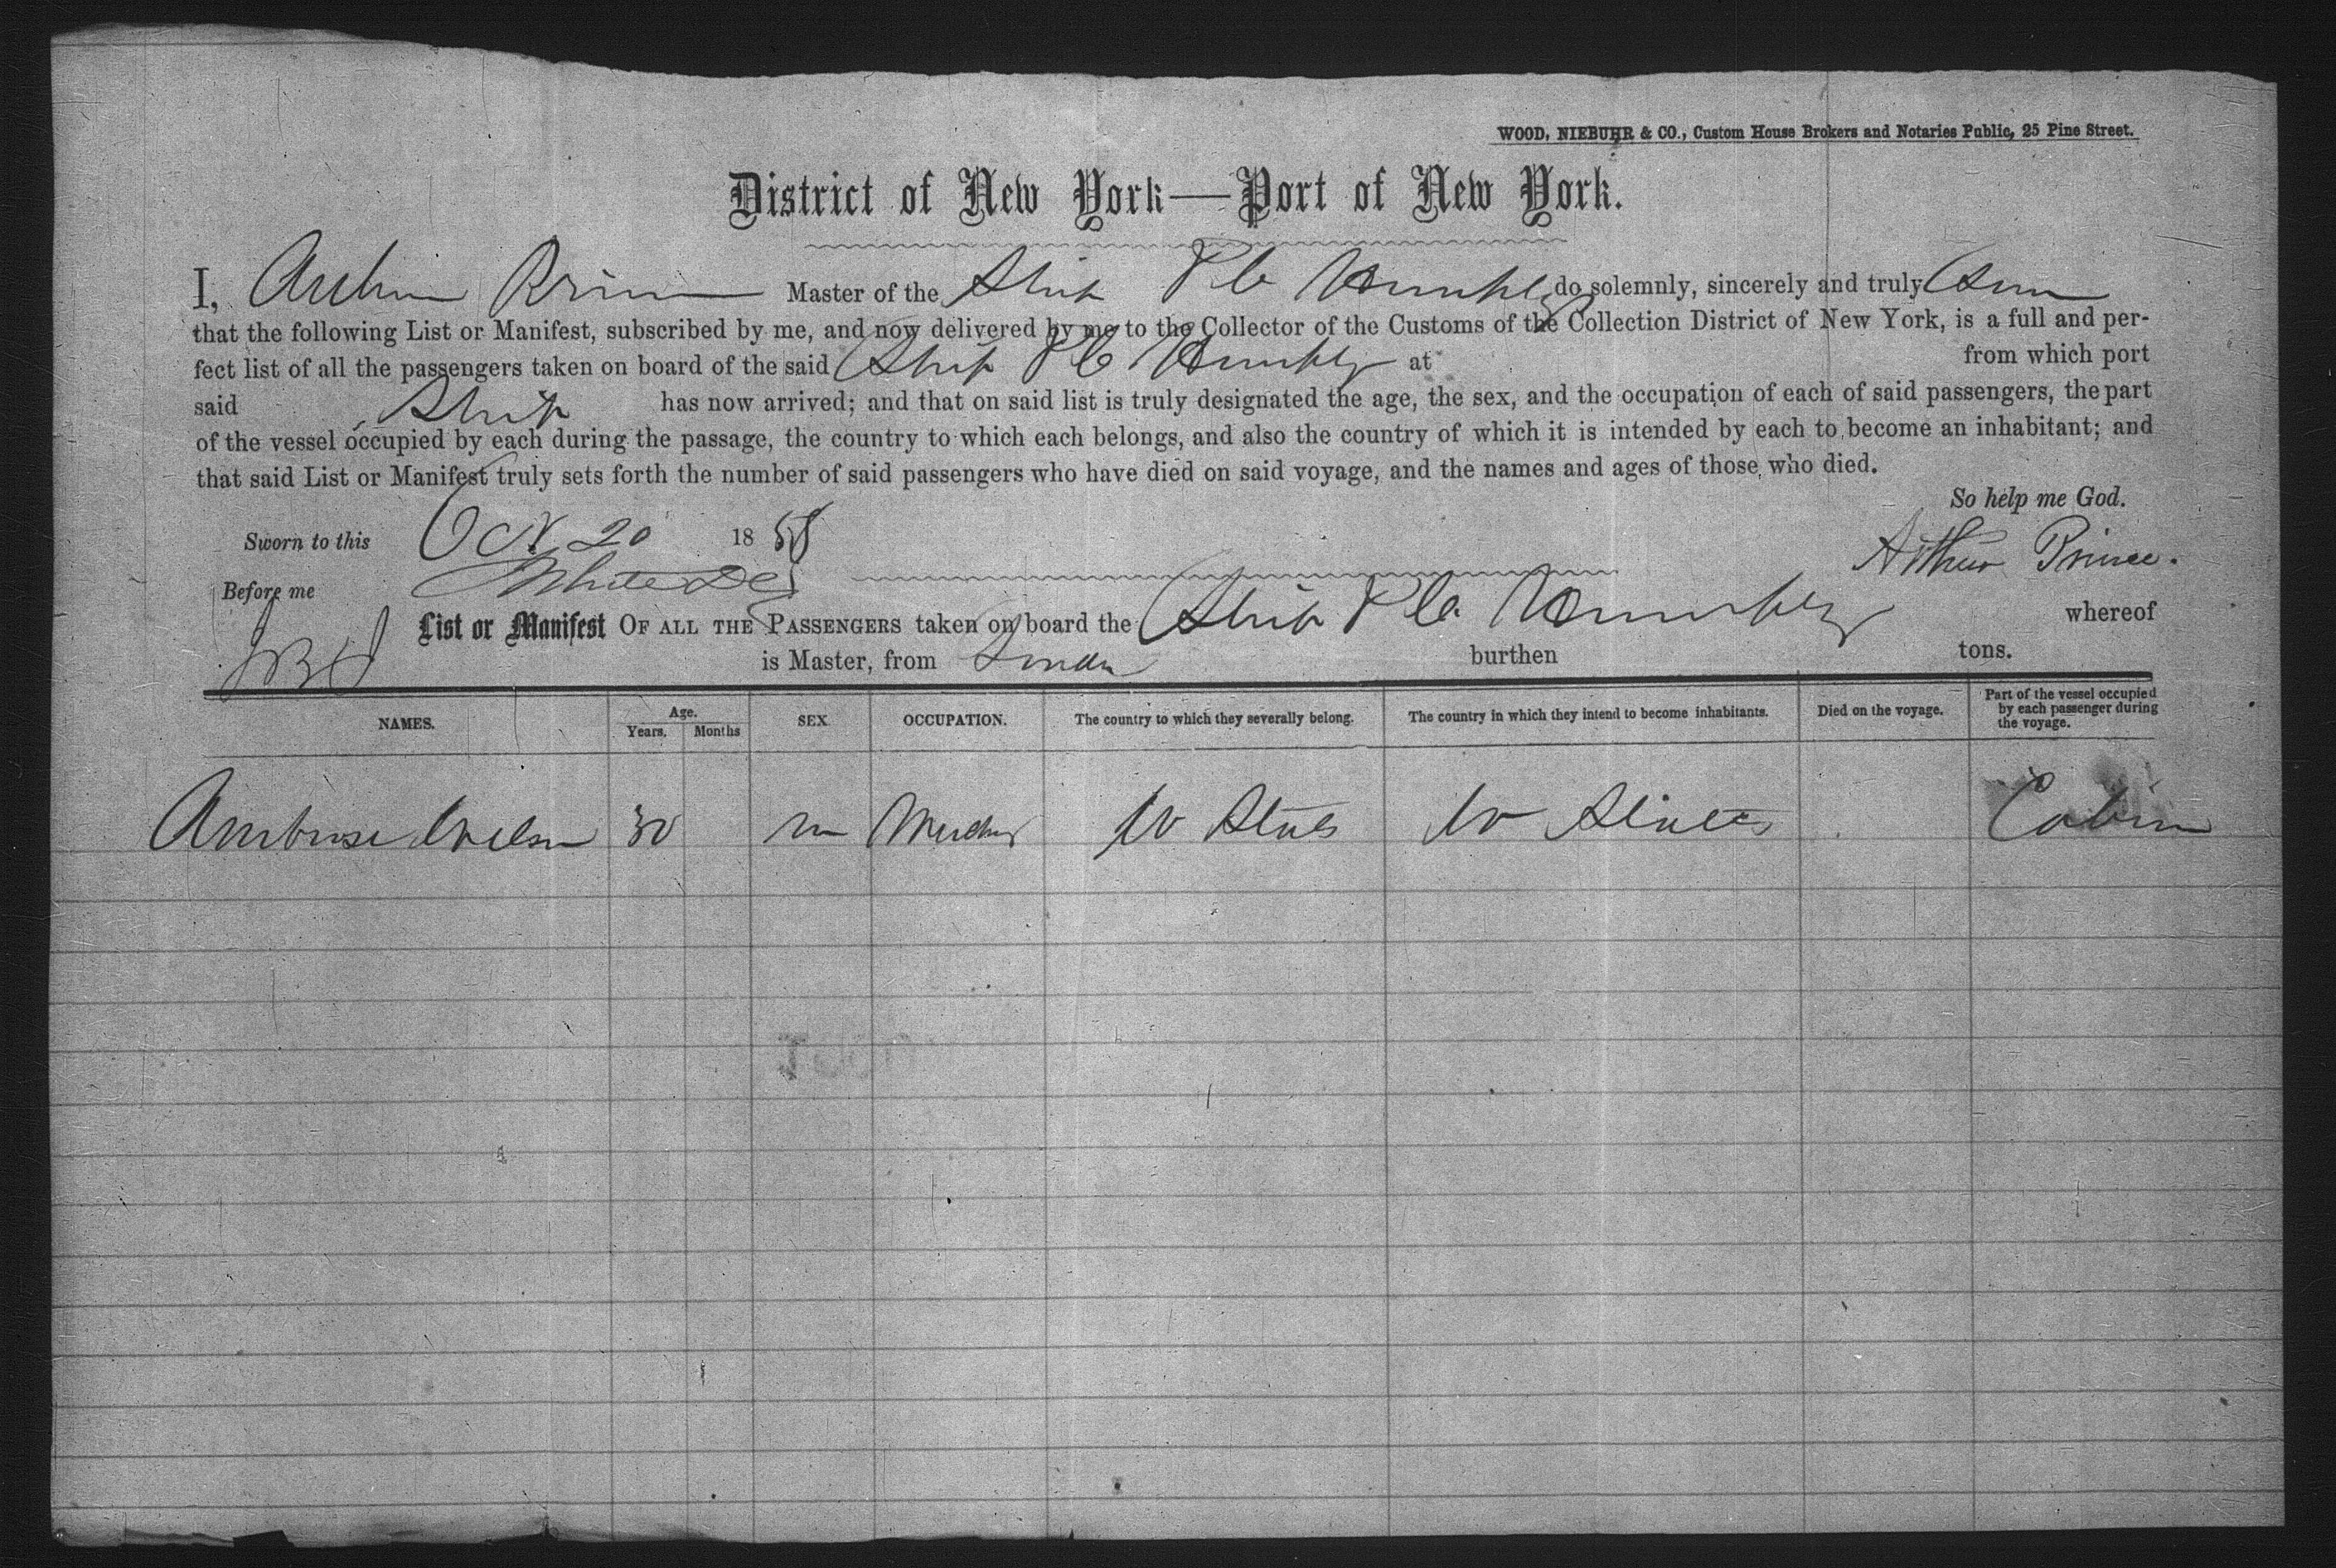 WOOD, NIEBUHR & CO., Custom House Brokers and Notaries Public, 25 Pine Street.
District of New York—Port of New York.
I, Arthur Prince Master of the Ship do solemnly, sincerely and truly
that the following List or Manifest, subscribed by me, and now delivered by me to the Collector of the Customs of the Collection District of New York, is a full and per-
fect list of all the passengers taken on board of the said Ship at from which port
said Ship has now arrived; and that on said list is truly designated the age, the sex, and the occupation of each of said passengers, the part
of the vessel occupied by each during the passage, the country to which each belongs, and also the country of which it is intended by each to become an inhabitant; and
that said List or Manifest truly sets forth the number of said passengers who have died on said voyage, and the names and ages of those who died.
So help me God.
Sworn to this Oct 20 1858
Arthur Prince.
Before me
List or Manifest OF ALL THE PASSENGERS taken on board the Ship whereof
is Master, from London burthen tons.
NAMES. Age. Years. Months SEX OCCUPATION. The country to which they severally belong. The country in which they intend to become inhabitants. Died on the voyage. Part of the vessel occupied by each passenger during the voyage.
Ambrose 30 m U States U States Cabin